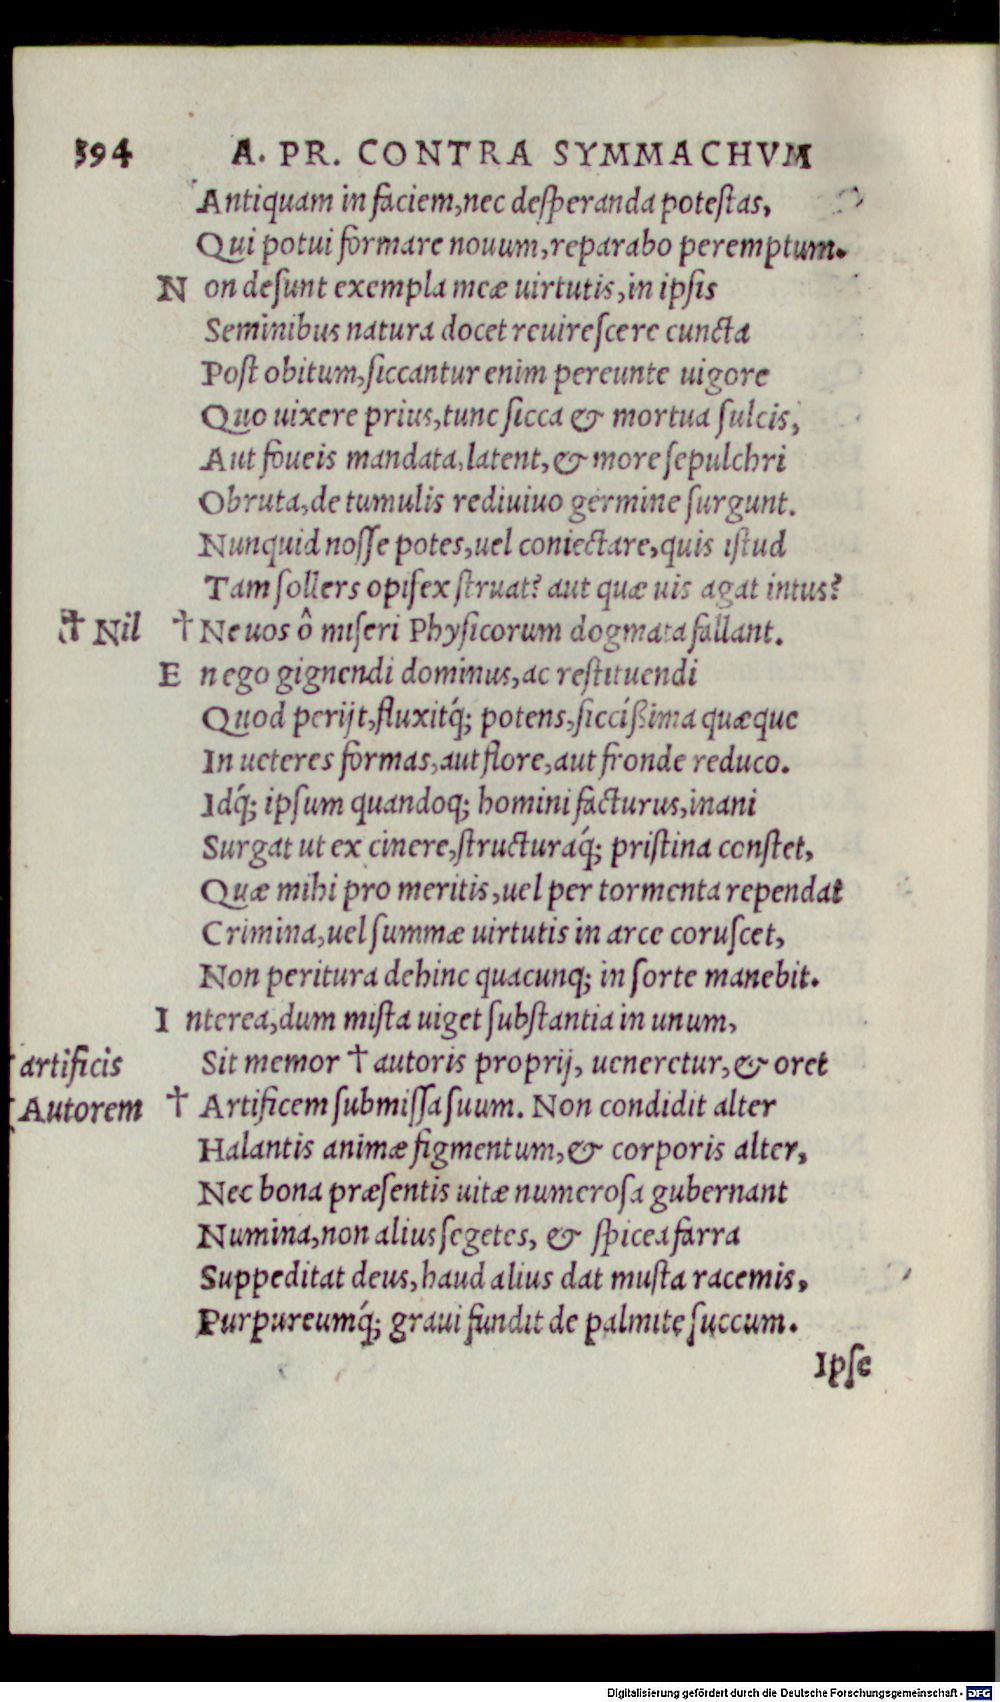 394 A. PR. CONTRA SYMMACHVM
Antiquam in faciem, nec desperanda potestas,
Qui potui formare nouum, reparabo peremptum.
N on desunt exempla meæ uirtutis, in ipsis
Seminibus natura docet reuirescere cuncta
Post obitum, siccantur enim pereunte uigore
Quo uixere prius, tunc sicca & mortua sulcis,
Aut foueis mandata, latent, & more sepulchri
Obruta, de tumulis rediuiuo germine surgunt.
Nunquid nosse potes, uel coniectare, quis istud
Tam sollers opifex struat? aut quæ uis agat intus?
† Nil † Ne uos ô miseri Physicorum dogmata fallant.
E n ego gignendi dominus, ac restituendi
Quod perijt, fluxitq́; potens, siccißima quæque
In ueteres formas, aut flore, aut fronde reduco.
Idq́; ipsum quandoq; homini facturus, inani
Surgat ut ex cinere, structuraq́; pristina constet,
Quæ mihi pro meritis, uel per tormenta rependat
Crimina, uel summæ uirtutis in arce coruscet,
Non peritura dehinc quacunq; in sorte manebit.
I nterea, dum mista uiget substantia in unum,
artificis Sit memor † autoris proprij, ueneretur, & oret
Autorem † Artificem submissa suum. Non condidit alter
Halantis animæ figmentum, & corporis alter,
Nec bona præsentis uitæ numerosa gubernant
Numina, non alius segetes, & spicea farra
Suppeditat deus, haud alius dat musta racemis,
Purpureumq́; graui fundit de palmite succum.
Ipse
Digitalisierung gefördert durch die Deutsche Forschungsgemeinschaft - DFG